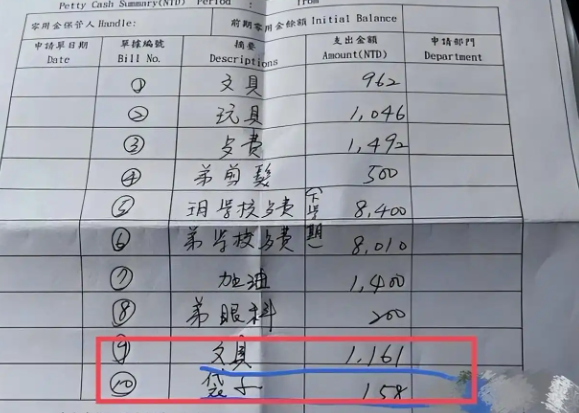 Petty Cash Summary(NTD) Period : from
零用金保管人Handle: 前期零用金餘額 Initial Balance
申請單日期 Date 單據編號 Bill No. 摘要 Descriptions 支出金額 Amount(NTD) 申請部門 Department
① 文具 962
② 玩具 1,046
③ 1,492
④ 弟剪髮 500
⑤ 學校 費(下學期) 8,400
⑥ 弟學校 費 8,010
⑦ 加油 1,400
⑧ 弟眼科 200
⑨ 文具 1,161
⑩ 袋子 158